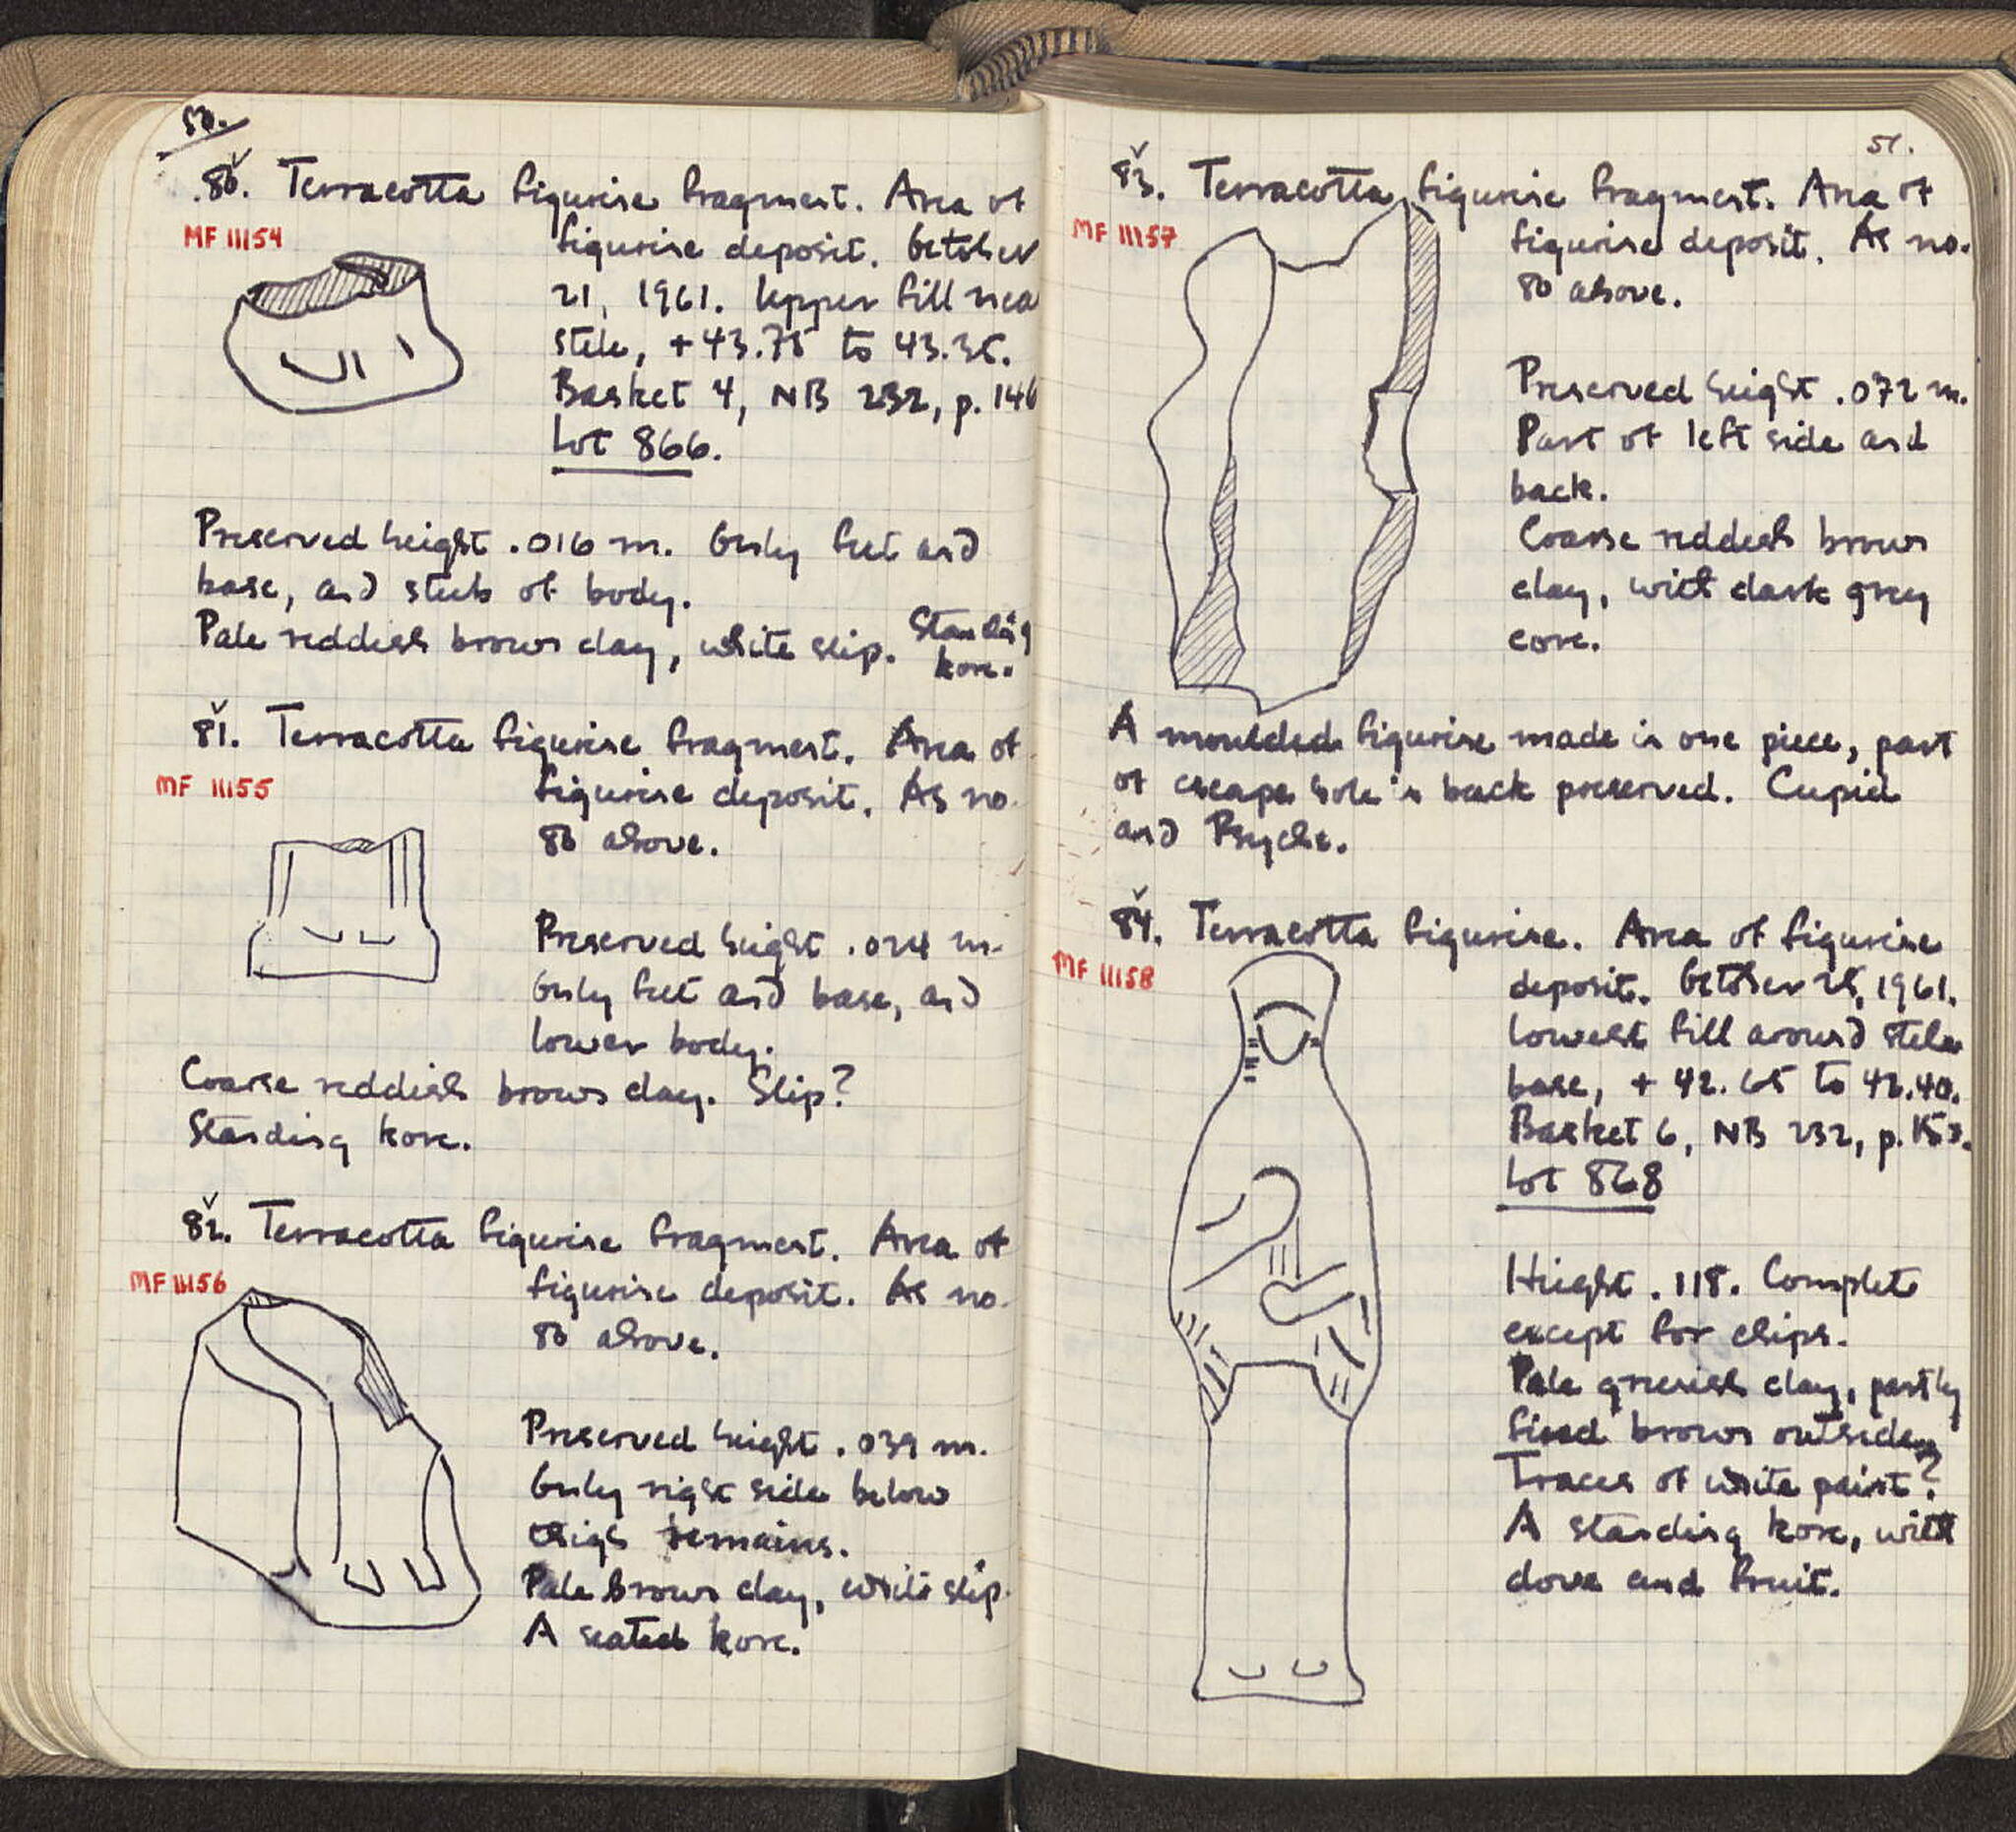 50.
80. Terracotta figurine fragment. Area of
MF 11154
figurine deposit. October
21, 1961. Upper fill nea
stele, +43.75 to 43.35.
Basket 4, NB 232, p. 146
Lot 866.
Preserved height .016 m. Only feet and
base, and stub of body.
Pale reddish brown clay, white slip. Standing
kore.
81. Terracotta figurine fragment. Area of
MF 11155
figurine deposit. As no.
80 above.
Preserved height .024 m.
Only feet and base, and
lower body.
Coarse reddish brown clay. Slip?
Standing kore.
82. Terracotta figurine fragment. Area of
MF 11156
figurine deposit. As no.
80 above.
Preserved height .039 m.
Only right side below
thigh remains.
Pale brown clay, white slip.
A seated kore.
51.
83. Terracotta figurine fragment. Area of
MF 11157
figurine deposit. As no.
80 above.
Preserved height .072 m.
Part of left side and
back.
Coarse reddish brown
clay, with dark grey
core.
A moulded figurine made in one piece, part
of escape hole in back preserved. Cupid
and Psyche.
84. Terracotta figurine. Area of figurine
MF 11158
deposit. October 25, 1961.
Lowest fill around stele
base, + 42.65 to 42.40.
Basket 6, NB 232, p.
Lot 868
Height .118. Complete
except for chips.
Pale greenish clay, partly
fired brown outside.
Traces of white paint?
A standing kore, with
dove and fruit.